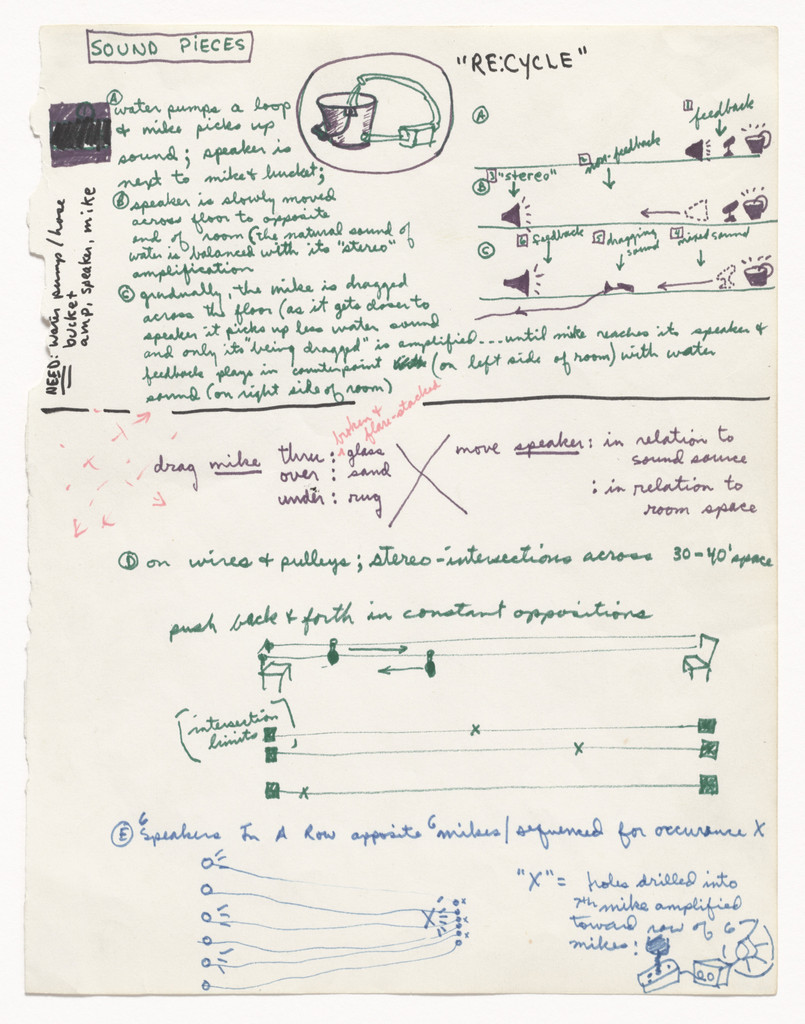 SOUND PIECES
"RE:CYCLE"
Ⓐ water pumps a loop
& mike picks up
sound; speaker is
next to mike & bucket;
Ⓑ speaker is slowly moved
across floor to opposite
end of room (the natural sound of
water is balanced with its "stereo"
amplification
Ⓒ gradually, the mike is dragged
across the floor (as it gets closer to
speaker it picks up less water sound
and only its "being dragged" is amplified...until mike reaches its speaker &
feedback plays in counterpoint (on left side of room) with water
sound (on right side of room)
NEED: water pump/hose
bucket
amp, speaker, mike
Ⓐ
1 feedback
2 non-feedback
3 "stereo"
Ⓑ
Ⓒ
6 feedback
5 dragging
sound
4 mixed sound
broken &
glare-stacked
drag mike thru: glass
over: sand
under: rug
move speaker: in relation to
sound source
: in relation to
room space
Ⓓ on wires & pulleys; stereo-intersections across 30-40' space
push back & forth in constant oppositions
(intersection
limits)
X
X
X
Ⓔ 6 Speakers In A Row opposite 6 mikes/sequenced for occurance X
X
"X" = holes drilled into
7th mike amplified
toward row of 6
mikes: